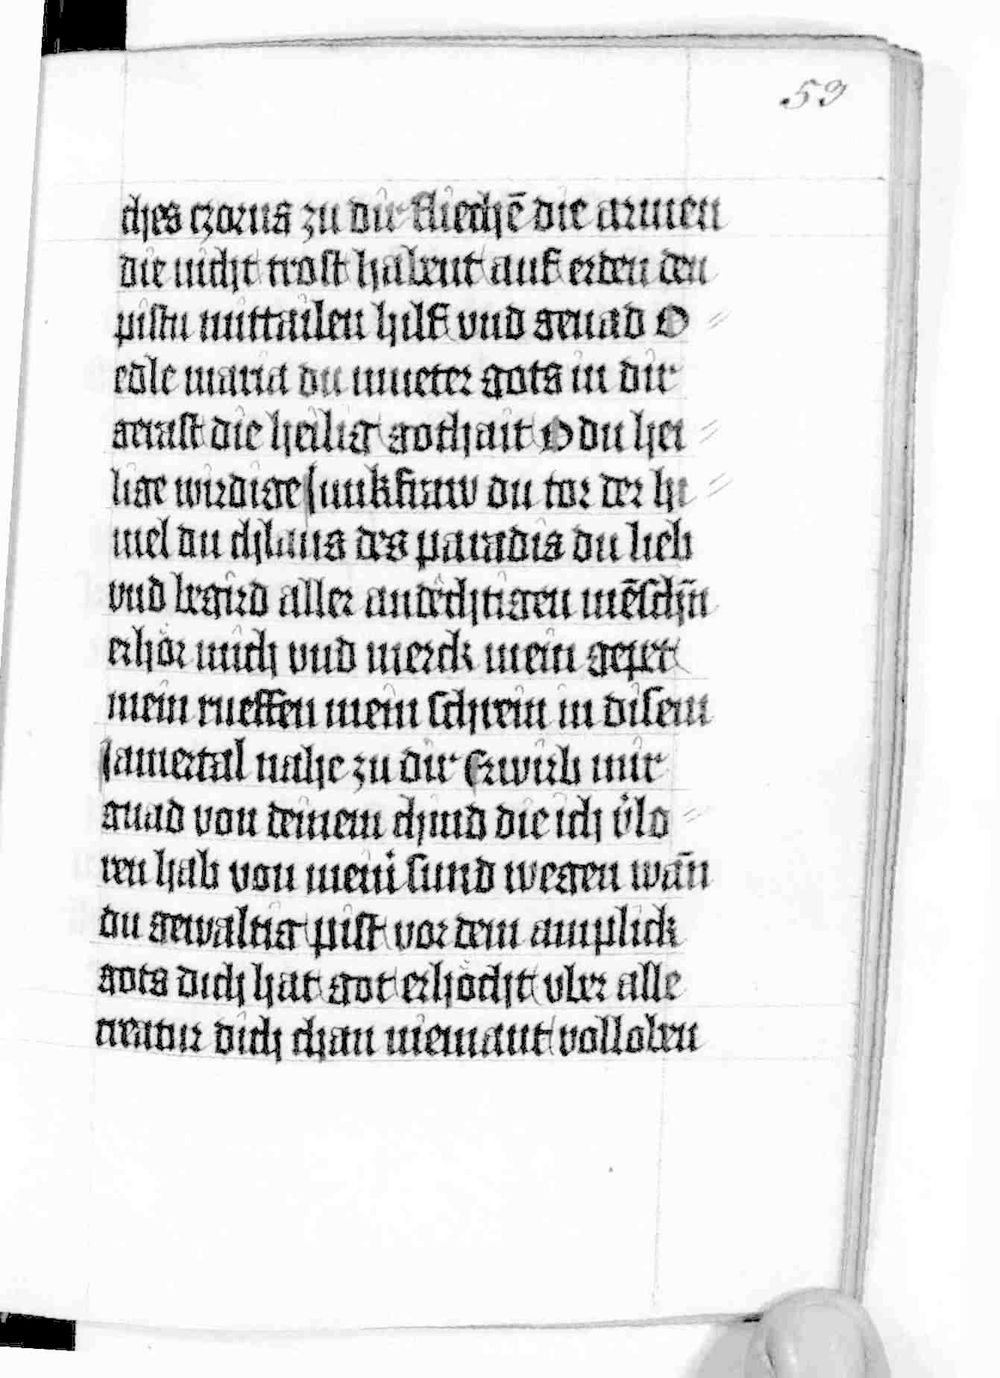 53
ches czorns zu dir fliechē die armen
die nicht trost habent auf erden den
pistu mittailen hilf vnd genad O
edle maria du mueter gots in dir
gerast die heilig gothait O du hei
lige wirdige Junkfraw du tor der hi
mel du chlaus des paradis du lieb
vnd begird aller andëchtigen mēschn̄
erhör mich vnd merck mein gepet
mein rueffen mein schrein in disem
Jamertal nahe zu dir Erwirb mir
gnad von deinem chind die ich v̉lo
ren hab von mein̉ sund wegen wan̄
du gewaltig pist vor dem amplick
gots dich hat got erhöcht vber alle
creatur dich chan niemant volloben